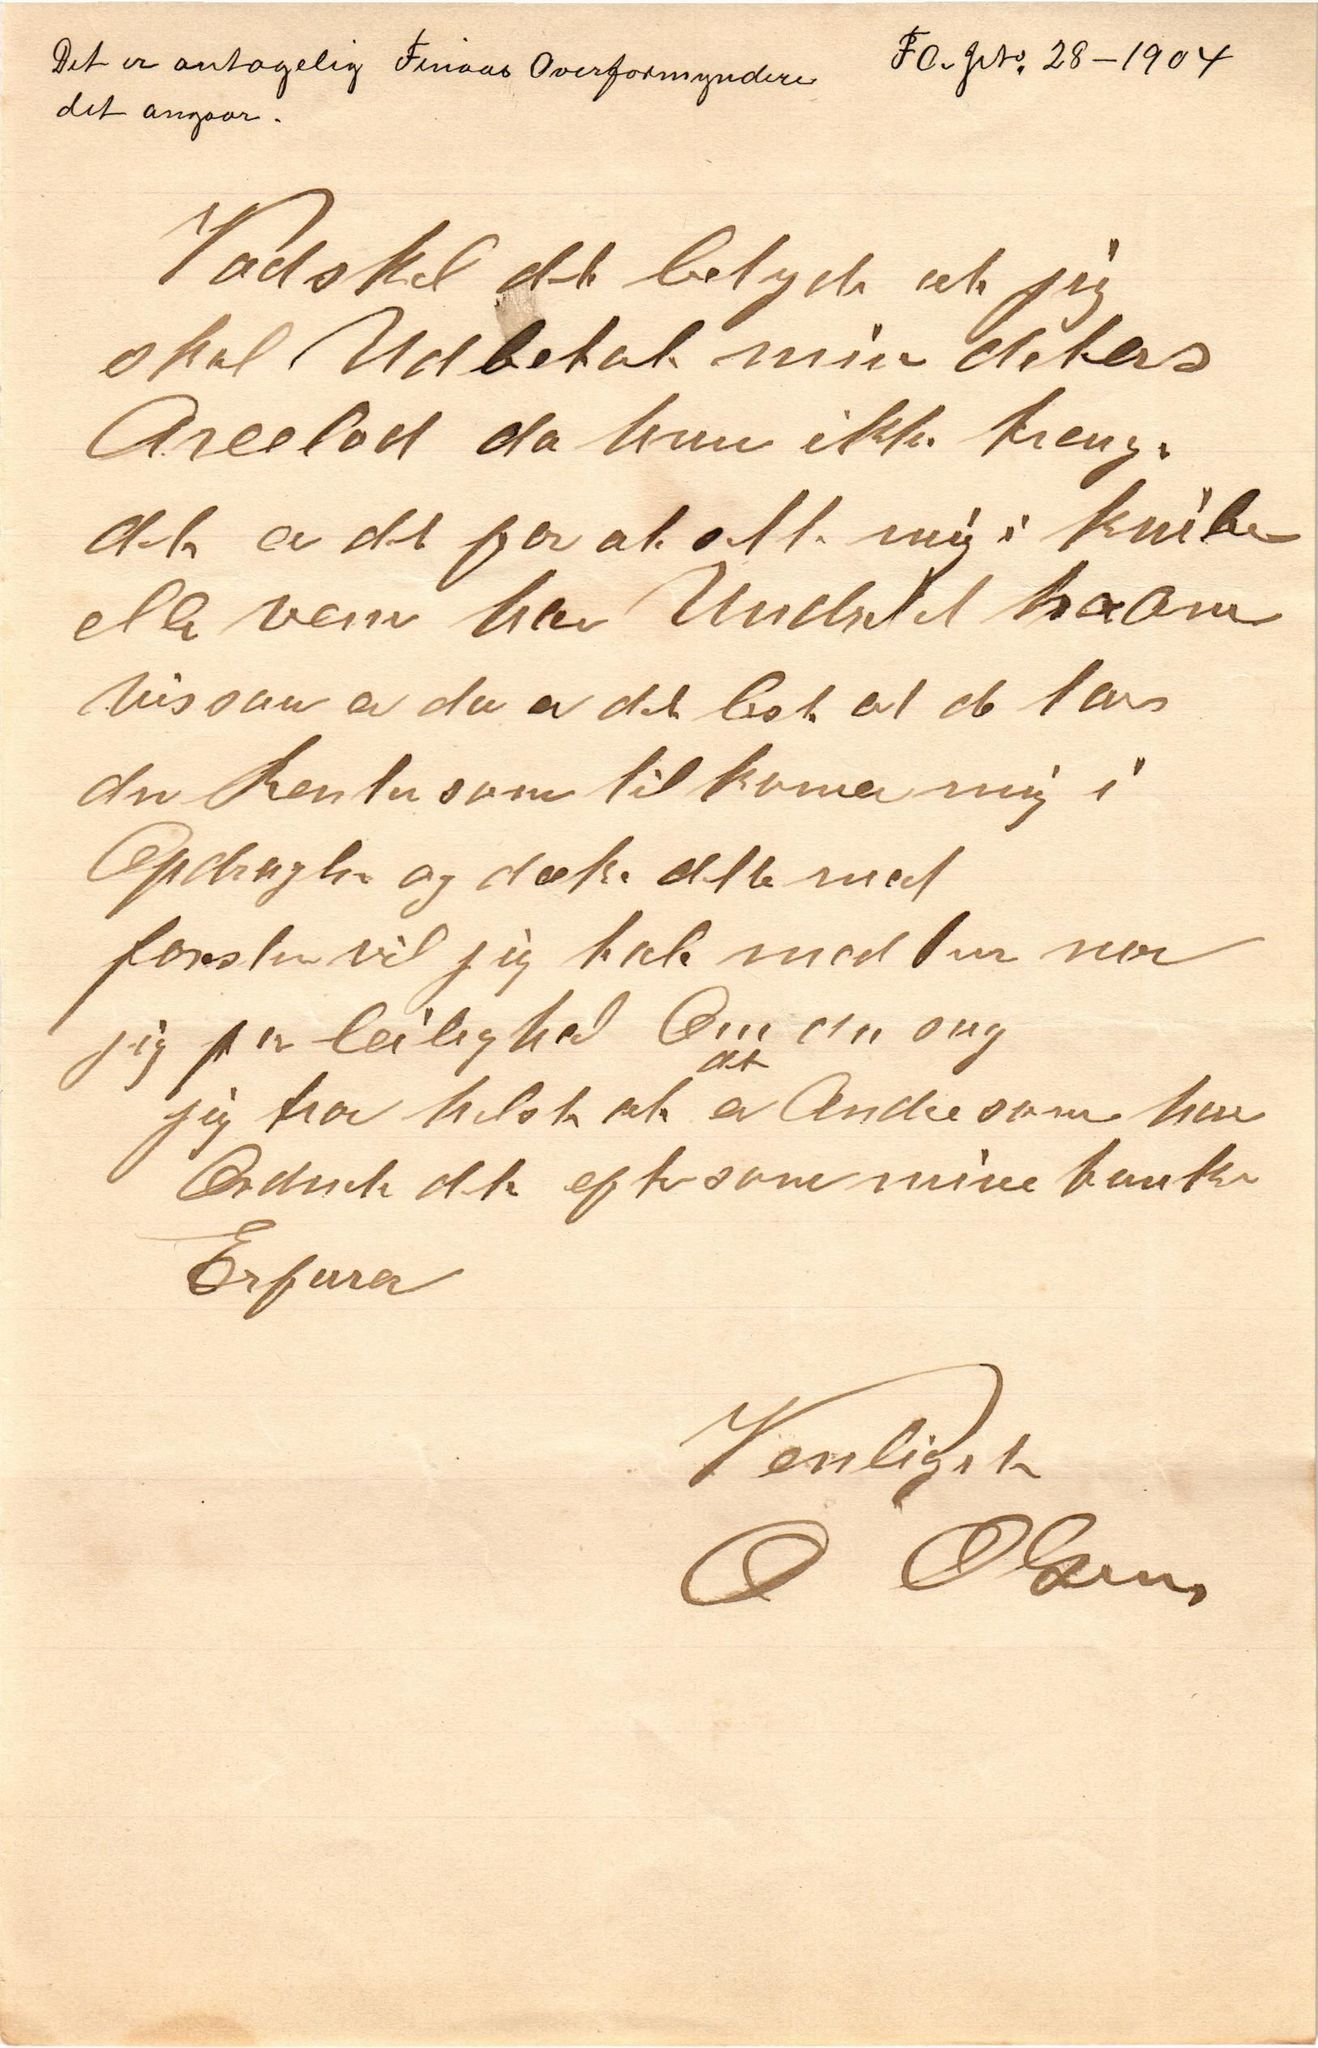 Det er antagelig Finaas Overformynderi
det angaar.
FO. Jr. No. 28-1904
Vad skal det betyde at jig
skal Udbetale min deters
Arcelod da hun ikke treng.
det er det for at sette mig i knibe
elle vem har Undret haam
vis saa er da er det best at de tar
den Renten som tilkomer mig i
Opdragle og dæke dette med
forsten vil jig tale med hur nor
jig for leilighed Om den sag
jig tror helst at det er Andre som har
Ordnet det efter som mine tanke
Erfarer
Venligst
O Olsen